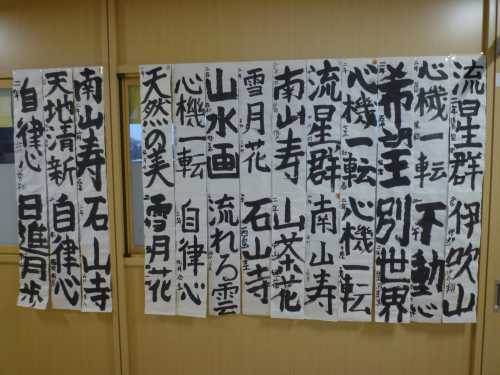 流星群 伊吹山
心機一転 不動心
希望 別世界
心機一転 心機一転
流星群 南山寿
南山寿 山茶花
雪月花 石山寺
山水画 流れる雲
心機一転 自律心
天然の美 雪月花
南山寿 石山寺
天地清新 自律心
自律心 日進月歩